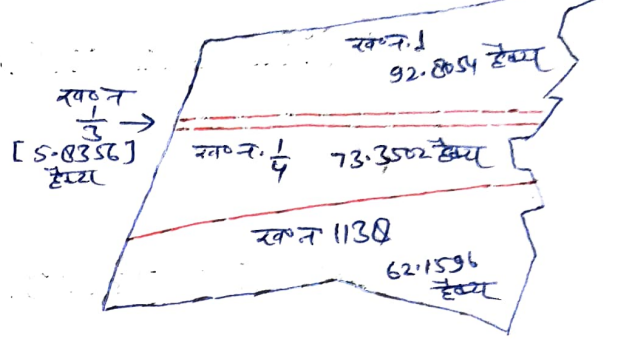 ख०न.1
92.8054 हैक्टे
ख०न
1/3 →
[5.8356]
हैक्टे
ख०न. 1/4 73.3502 हैक्टे
ख०न 1138
62.1596
हैक्टे